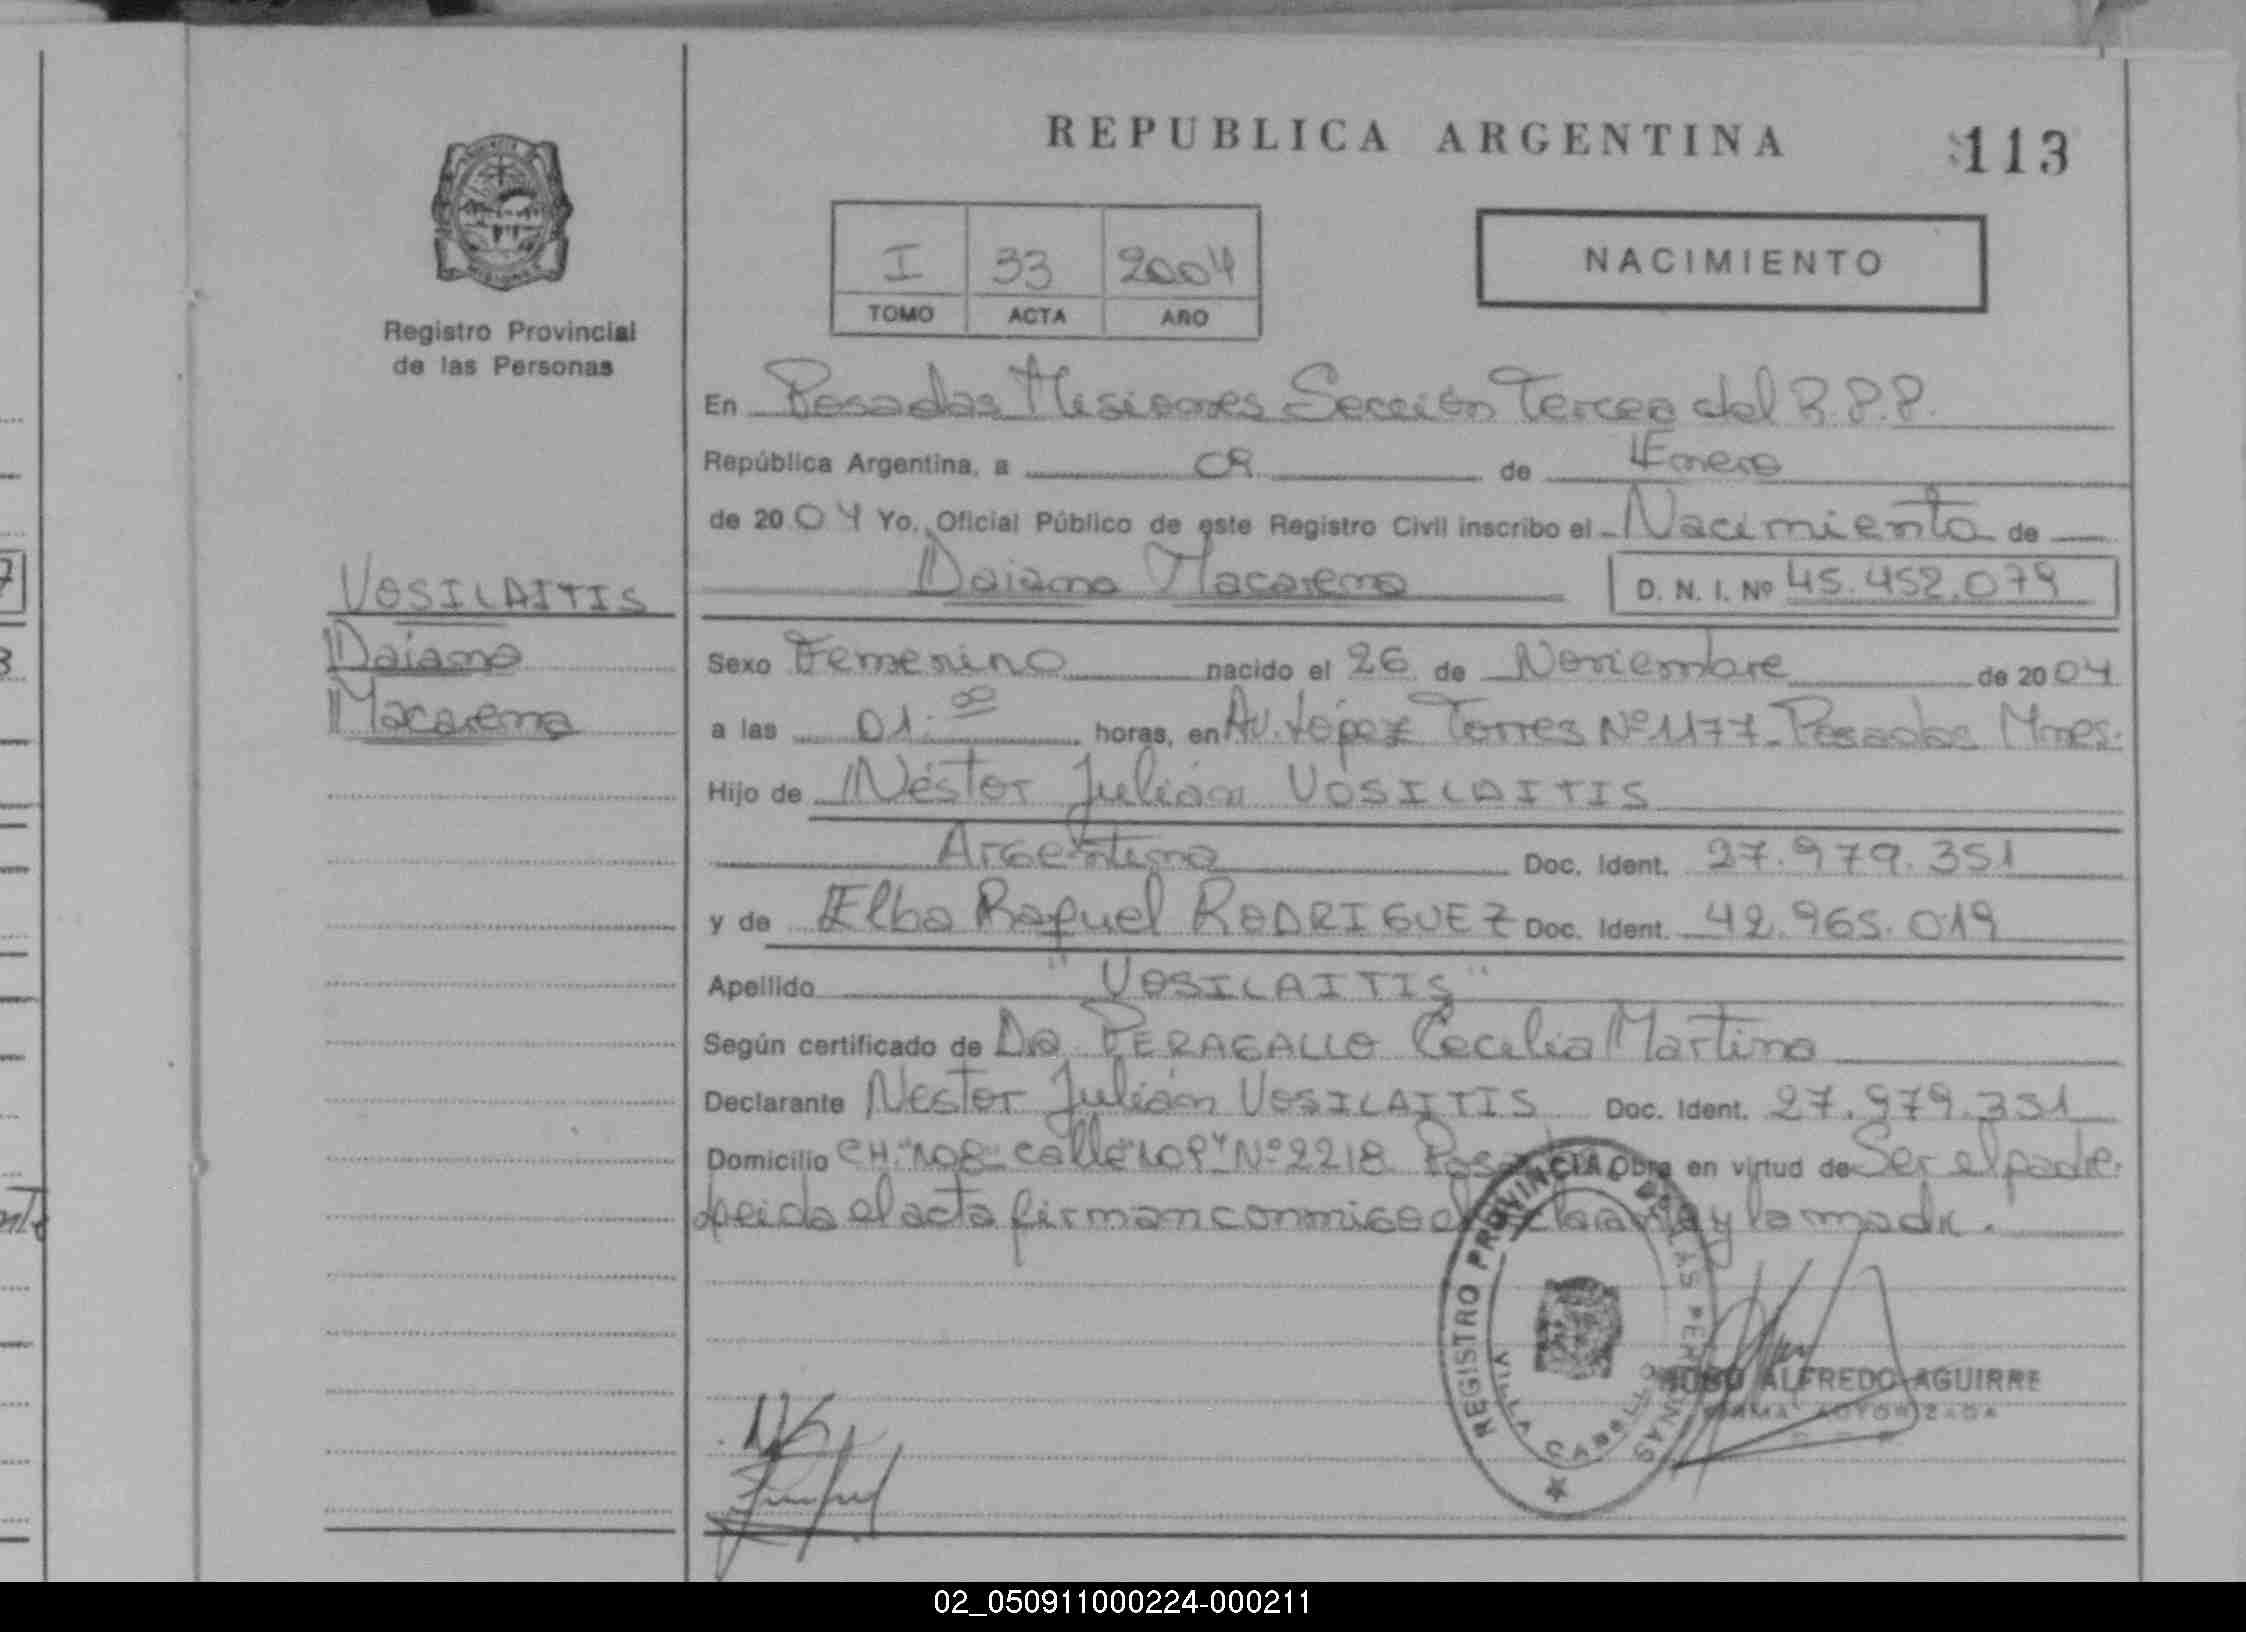 REPUBLICA ARGENTINA
113
I 33 2004
TOMO ACTA AÑO
NACIMIENTO
Registro Provincial
de las Personas
En Posadas Misiones Sección Tercea del R.P.P.
República Argentina, a 09 de Enero
de 20 04 Yo, Oficial Público de este Registro Civil inscribo el Nacimiento de
Daiana Macarena D. N. I. Nº 45.452.079
VOSILAITIS
Daiana
Macarena
Sexo Femenino nacido el 26 de Noviembre de 20 04
a las 01.00 horas, en Av. López Torres Nº 1177 - Posadas Mnes.
Hijo de Néstor Julián VOSILAITIS
Argentina Doc. Ident. 27.979.351
y de Elba Raquel RODRIGUEZ Doc. Ident. 42.965.019
Apellido "VOSILAITIS"
Según certificado de Dra PERAGALLO Cecilia Martina
Declarante Néstor Julián VOSILAITIS Doc. Ident. 27.979.351
Domicilio CH. "108" calle Nº 2218 Obra en virtud de Ser el padre.
Leida el acta firman conmigo el y la madre.
REGISTRO PROVINCIAL DE LAS PERSONAS
VILLA CABELLO
ALFREDO AGUIRRE
FIRMA AUTORIZADA
02_050911000224-000211